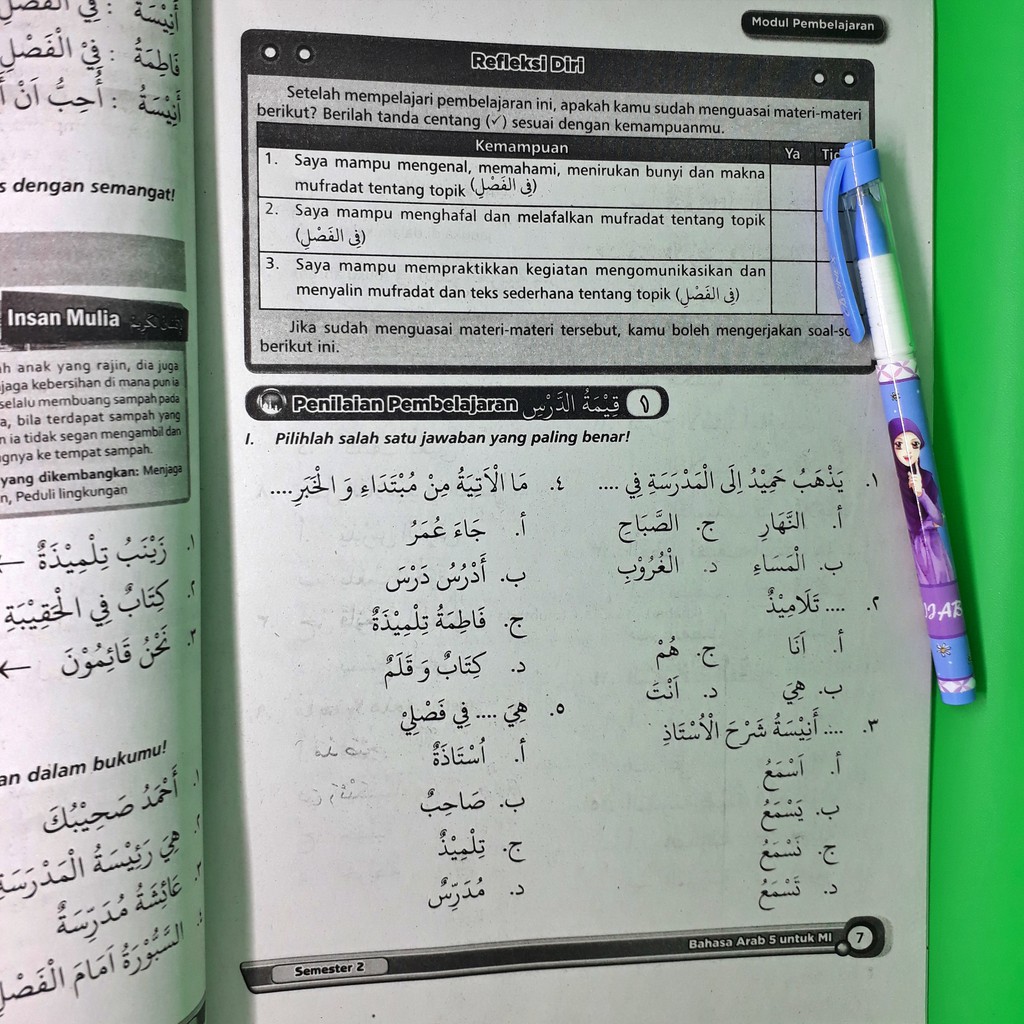 أَنِيْسَةُ : فِيْ الْفَصْلِ
فَاطِمَةُ : فِيْ الْفَصْلِ
أَنِيْسَةُ : أُحِبُّ اَنْ
dengan semangat!
Insan Mulia
anak yang rajin, dia juga
kebersihan di mana pun ia
selalu membuang sampah pada
bila terdapat sampah yang
ia tidak segan mengambil dan
ke tempat sampah.
yang dikembangkan: Menjaga
Peduli lingkungan
١. زَيْنَبُ تِلْمِيْذَةٌ ←
٢. كِتَابٌ فِي الْحَقِيْبَةِ
٣. نَحْنُ قَائِمُوْنَ ←
dalam bukumu!
١. أَحْمَدُ صَحِيْبُكَ
٢. هِيَ رَئِيْسَةُ الْمَدْرَسَةِ
٣. عَائِشَةُ مُدَرِّسَةٌ
٤. السَّبُّوْرَةُ اَمَامَ الْفَصْلِ
Modul Pembelajaran
Refleksi Diri
Setelah mempelajari pembelajaran ini, apakah kamu sudah menguasai materi-materi
berikut? Berilah tanda centang (✓) sesuai dengan kemampuanmu.
Kemampuan Ya
1. Saya mampu mengenal, memahami, menirukan bunyi dan makna
mufradat tentang topik (فِى الفَصْلِ)
2. Saya mampu menghafal dan melafalkan mufradat tentang topik
(فِى الفَصْلِ)
3. Saya mampu mempraktikkan kegiatan mengomunikasikan dan
menyalin mufradat dan teks sederhana tentang topik (فِى الفَصْلِ)
Jika sudah menguasai materi-materi tersebut, kamu boleh mengerjakan
berikut ini.
Penilaian Pembelajaran قِيْمَةُ الدَّرْسِ ١
I. Pilihlah salah satu jawaban yang paling benar!
١. يَذْهَبُ حَمِيْدُ اِلَى الْمَدْرَسَةِ فِي ....
أ. النَّهَارِ ج. الصَّبَاحِ
ب. الْمَسَاءِ د. الْغُرُوْبِ
٢. .... تَلَامِيْذٌ
أ. اَنَا ج. هُمْ
ب. هِيَ د. اَنْتَ
٣. .... أَنِيْسَةُ شَرْحَ الْاُسْتَاذِ
أ. اَسْمَعُ
ب. يَسْمَعُ
ج. نَسْمَعُ
د. تَسْمَعُ
٤. مَا الْاٰتِيَةُ مِنْ مُبْتَدَاءِ وَ الْخَبَرِ....
أ. جَاءَ عُمَرُ
ب. أَدْرُسُ دَرْسَ
ج. فَاطِمَةُ تِلْمِيْذَةٌ
د. كِتَابٌ وَ قَلَمٌ
٥. هِيَ .... فِي فَصْلِيْ
أ. اُسْتَاذَةٌ
ب. صَاحِبٌ
ج. تِلْمِيْذٌ
د. مُدَرِّسٌ
Semester 2
Bahasa Arab 5 untuk MI 7